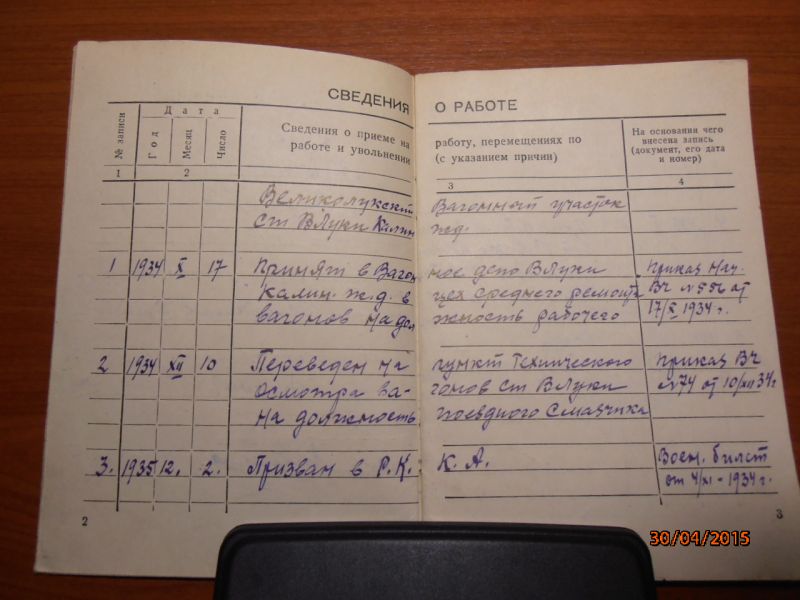 СВЕДЕНИЯ О РАБОТЕ
№ записи
Дата
Год
Месяц
Число
Сведения о приеме на работу, перемещениях по
работе и увольнении (с указанием причин)
На основании чего
внесена запись
(документ, его дата
и номер)
1 2 3 4
Великолукский Вагонный участок
ст ВЛуки Калин ж.д.
1 1934 X 17 Принят в Вагонное депо ВЛуки Приказ Нач.
Калин. ж.д. в цех среднего ремонта ВЧ №556 от
вагонов на должность рабочего 17/X 1934 г.
2 1934 XII 10 Переведен на пункт Технического Приказ ВЧ
осмотра вагонов ст ВЛуки №74 от 10/XII 34г
на должность поездного Смазчика
3. 1935 12. 2. Призван в Р.К.К.А. Воен. билет
от 4/XI-1934 г.
2
3
30/04/2015